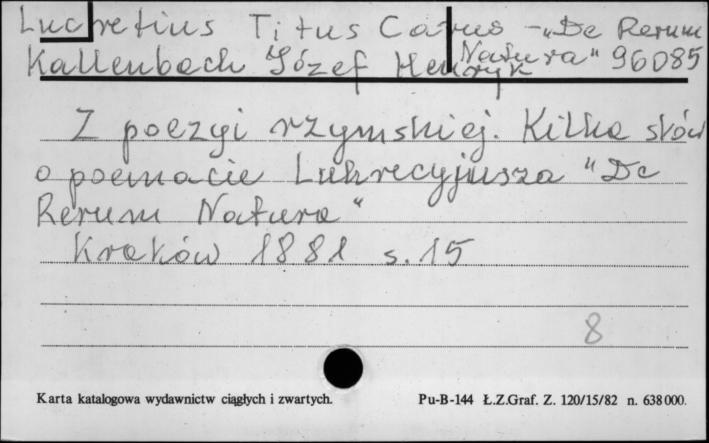 Lucretius Titus Carus - „De Rerum
Natura" 96085
Kallenbach Józef Henryk
Z poezyi rzymskiej. Kilka słów
o poemacie Lukrecyjusza "De
Rerum Natura"
Kraków 1881 s. 15
8
Karta katalogowa wydawnictw ciągłych i zwartych. Pu-B-144 Ł.Z.Graf. Z. 120/15/82 n. 638 000.